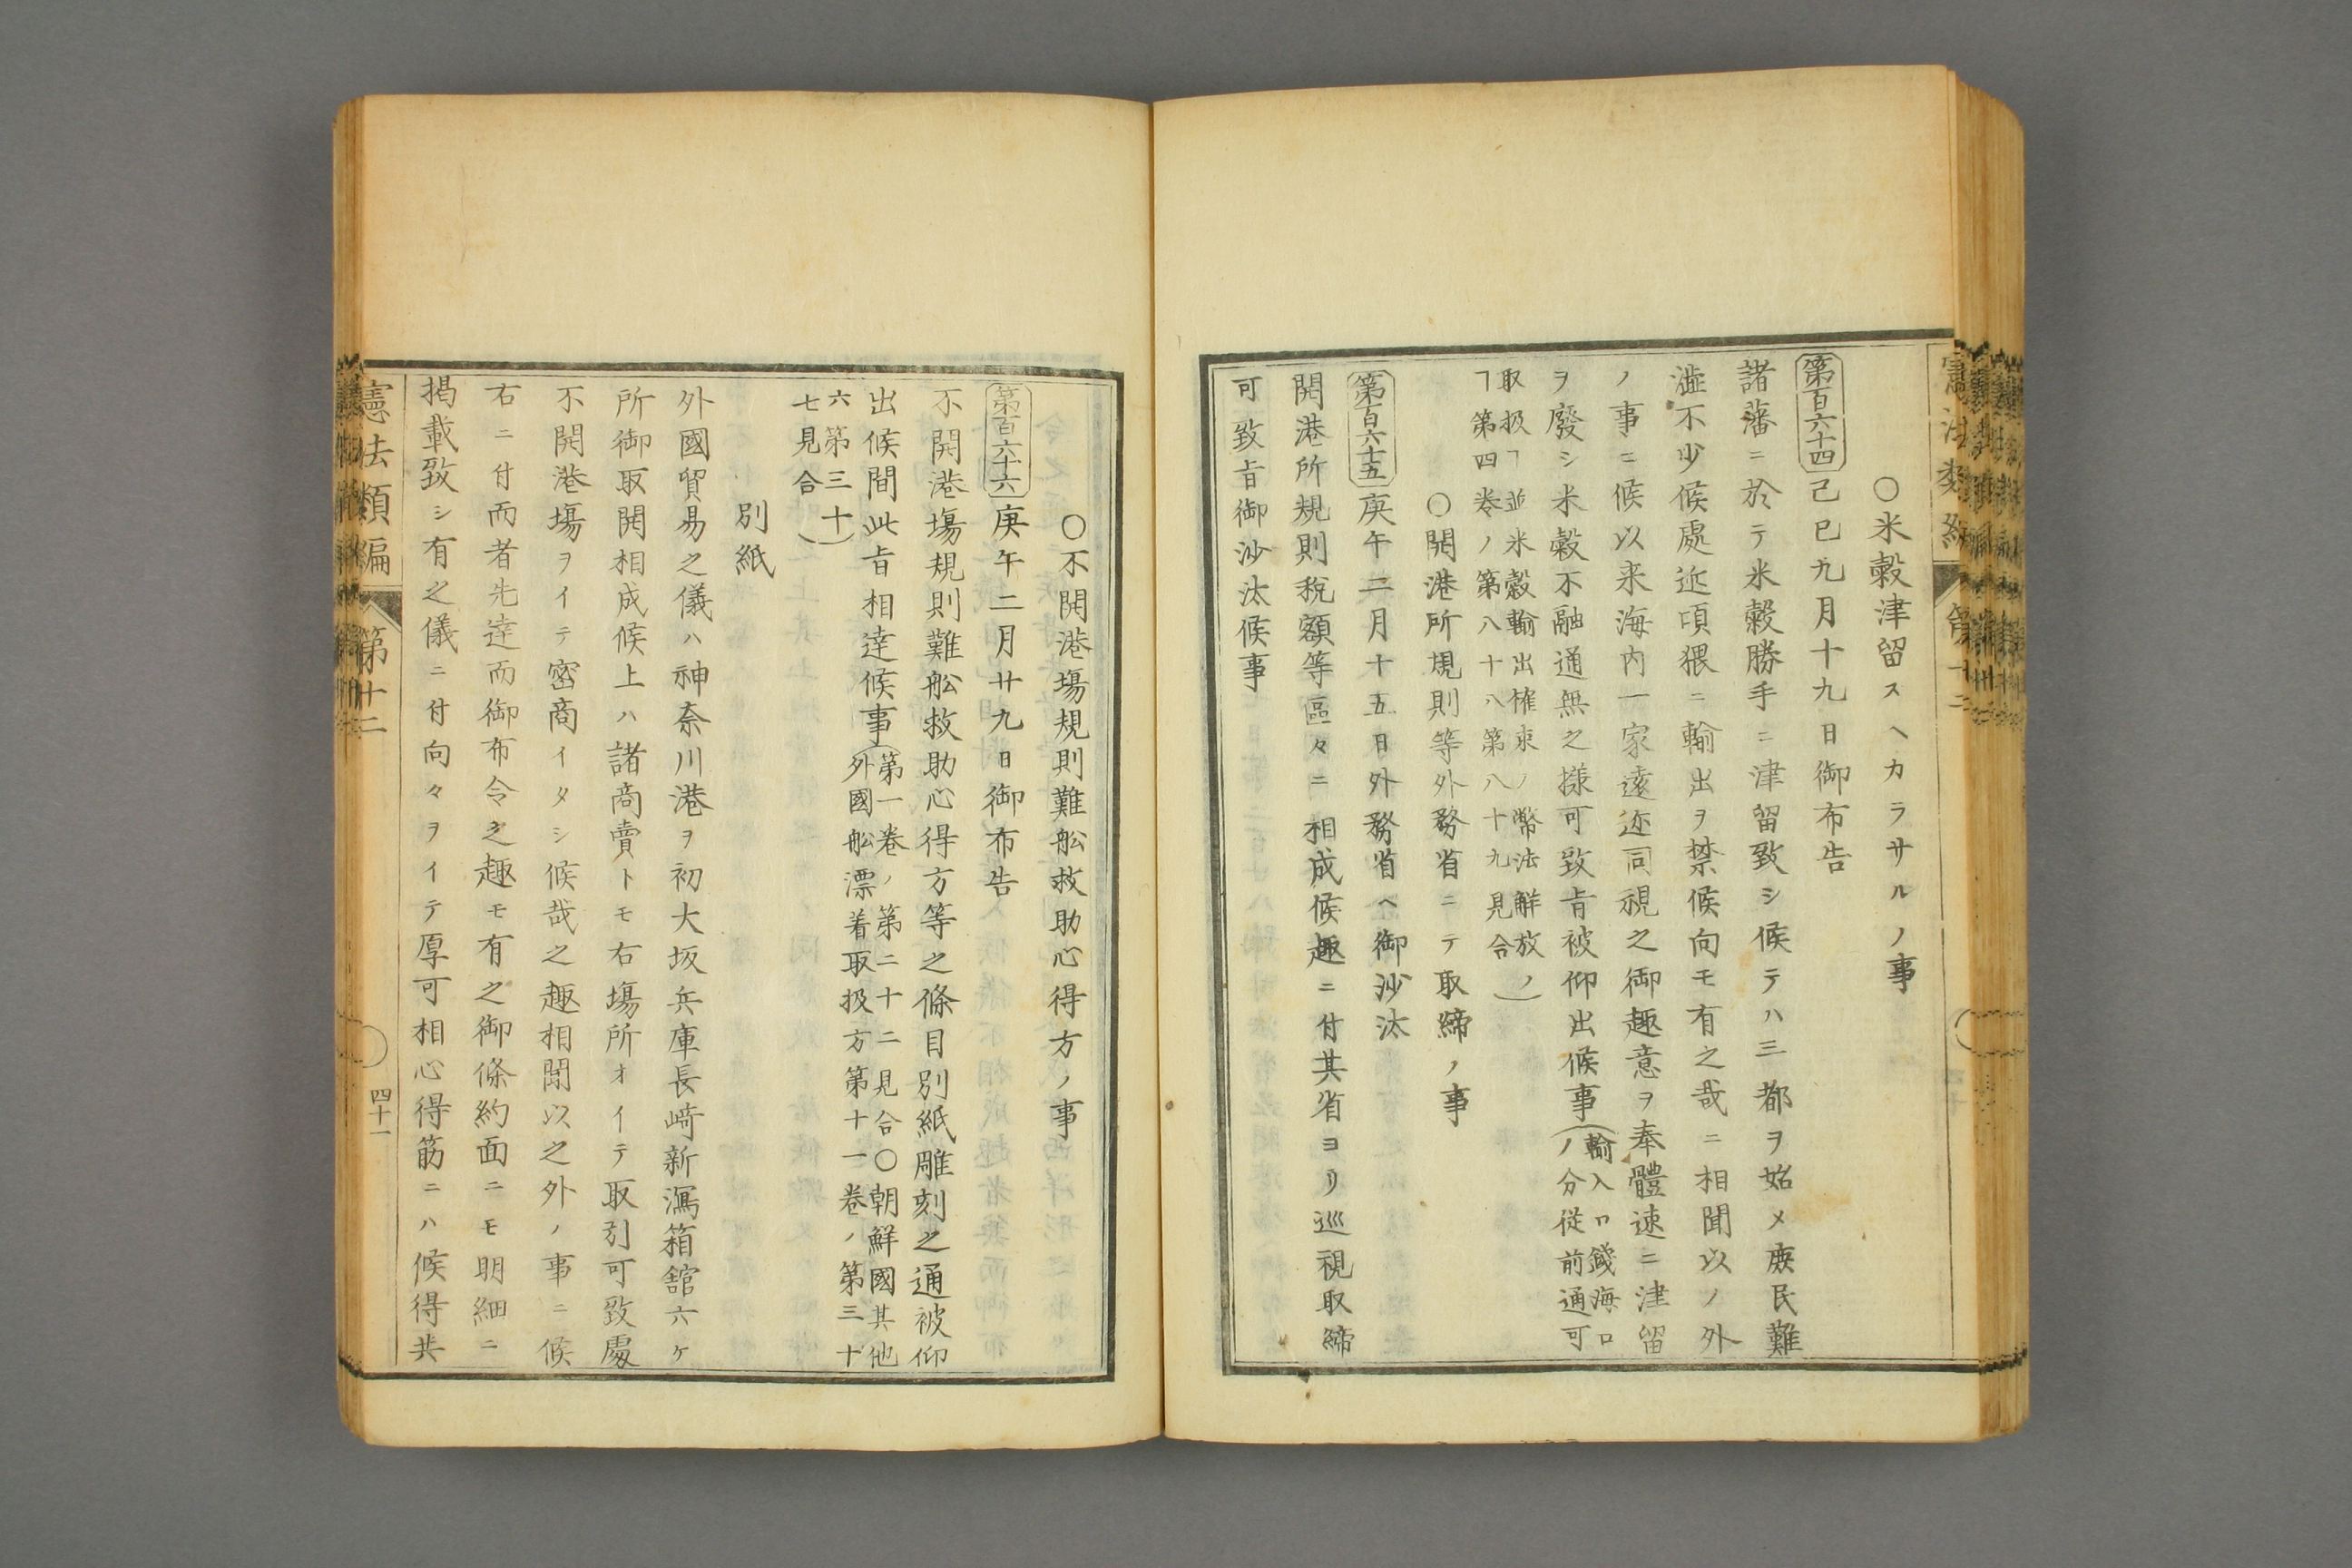 ○米穀津留スヘカラサルノ事
第百六十四 己巳九月十九日御布告
諸藩ニ於テ米穀勝手ニ津留致シ候テハ三都ヲ始メ庻民難
澁不少候處近頃猥ニ輸出ヲ禁候向モ有之哉ニ相聞以ノ外
ノ事ニ候以来海内一家遠迩同視之御趣意ヲ奉體速ニ津留
ヲ廢シ米穀不融通無之様可致旨被仰出候事(輸入口錢海口
ノ分従前通可
取扱ヿ並米穀輸出榷束ノ幣法解放ノ
ヿ第四卷ノ第八十八第八十九見合)
○開港所規則等外務省ニテ取締ノ事
第百六十五 庚午二月十五日外務省ヘ御沙汰
開港所規則税額等區々ニ相成候趣ニ付其省ヨリ巡視取締
可致旨御沙汰候事
○不開港塲規則難舩救助心得方ノ事
第百六十六 庚午二月廿九日御布告
不開港塲規則難舩救助心得方等之條目別紙雕刻之通被仰
出候間此旨相達候事(第一卷ノ第二十二見合○朝鮮國其他
外國舩漂着取扱方第十一卷ノ第三十
六第三十
七見合)
別紙
外國貿易之儀ハ神奈川港ヲ初大坂兵庫長崎新潟箱舘六ケ
所御取開相成候上ハ諸商賣トモ右塲所オイテ取引可致處
不開港塲ヲイテ密商イタシ候哉之趣相聞以之外ノ事ニ候
右ニ付而者先達而御布令之趣モ有之御條約面ニモ明細ニ
掲載致シ有之儀ニ付向々ヲイテ厚可相心得筋ニハ候得共
憲法類編 第廿二 四十一